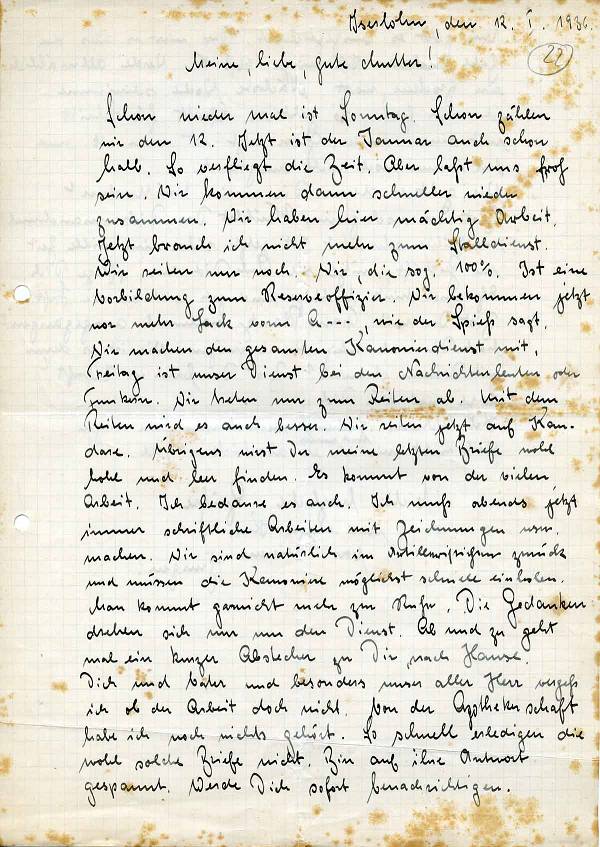 Iserlohn, den 12. I. 1936.
22
Meine, liebe, gute Mutter!
Schon wieder mal ist Sonntag. Schon zählen
wir den 12. Jetzt ist der Januar auch schon
halb. So verfliegt die Zeit. Aber laßt uns froh
sein. Wir kommen dann schneller wieder
zusammen. Wir haben hier mächtig Arbeit.
Jetzt brauch ich nicht mehr zum Stalldienst.
Wir reiten nur noch. Wir, die sog. 100%. Ist eine
Vorbildung zum Reserveoffizier. Wir bekommen jetzt
nur mehr Sack vorm A---, wie der Spieß sagt.
Wir machen den gesamten Kanonierdienst mit,
Freitag ist unser Dienst bei den Nachrichtenleuten oder
Funkern. Wir treten nur zum Reiten ab. Mit dem
Reiten wird es auch besser. Wir reiten jetzt auf Kan-
dare. Übrigens wirst Du meine letzten Briefe wohl
hohl und leer finden. Es kommt von der vielen
Arbeit. Ich bedaure es auch. Ich muß abends jetzt
immer schriftliche Arbeiten mit Zeichnungen usw.
machen. Wir sind natürlich im zurück
und müssen die Kanoniere möglichst schnell einholen.
Man kommt garnicht mehr zur Ruhe. Die Gedanken
drehen sich nur um den Dienst. Ab und zu geht
mal ein kurzer Abstecher zu Dir nach Hause.
Dich und Vater und besonders unser aller Herr vergeß
ich ob der Arbeit doch nicht. Von der Apothekerschaft
habe ich noch nichts gehört. So schnell erledigen die
wohl solche Briefe nicht. Bin auf ihre Antwort
gespannt. Werde Dich sofort benachrichtigen.